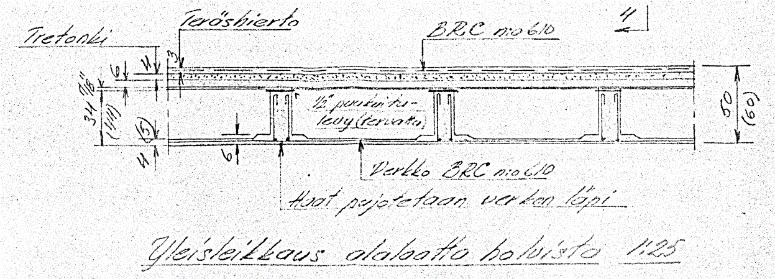 Teräshierto
Tretonki
BRC n:o 610
4
3
4
6
½" puukuitu-
levy (tervattu)
34
(44)
(5)
4
6
50
(60)
Verkko BRC n:o 610
Haat pujotetaan verkon läpi
Yleisleikkaus alalaatta holvista 1:25